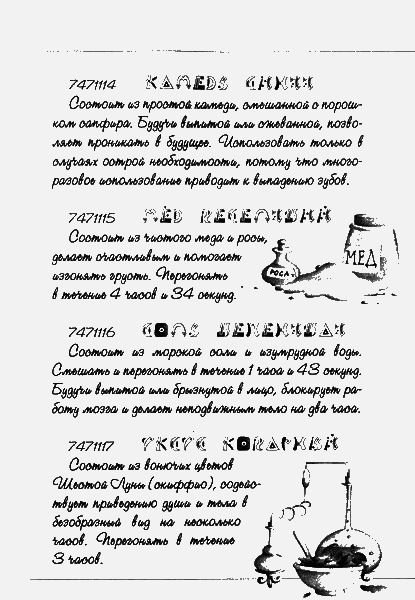 7471114 КАМЕДЬ СИНЯЯ
Состоит из простой камеди, смешанной с порош-
ком сапфира. Будучи выпитой или сжеванной, позво-
ляет проникать в будущее. Использовать только в
случаях острой необходимости, потому что много-
разовое использование приводит к выпадению зубов.
7471115 МЁД ВЕСЕЛИВЫЙ
Состоит из чистого меда и росы,
делает счастливым и помогает
изгонять грусть. Перегонять
в течение 4 часов и 34 секунд.
РОСА
МЕД
7471116 СОЛЬ
Состоит из морской соли и изумрудной воды.
Смешать и перегонять в течение 1 часа и 43 секунд.
Будучи выпитой или брызнутой в лицо, блокирует ра-
боту мозга и делает неподвижным тело на два часа.
7471117 УКСУС КОВАРНЫЙ
Состоит из вонючих цветов
Шестой Луны (скиффио), содейс-
твует приведению души и тела в
безобразный вид на несколько
часов. Перегонять в течение
3 часов.